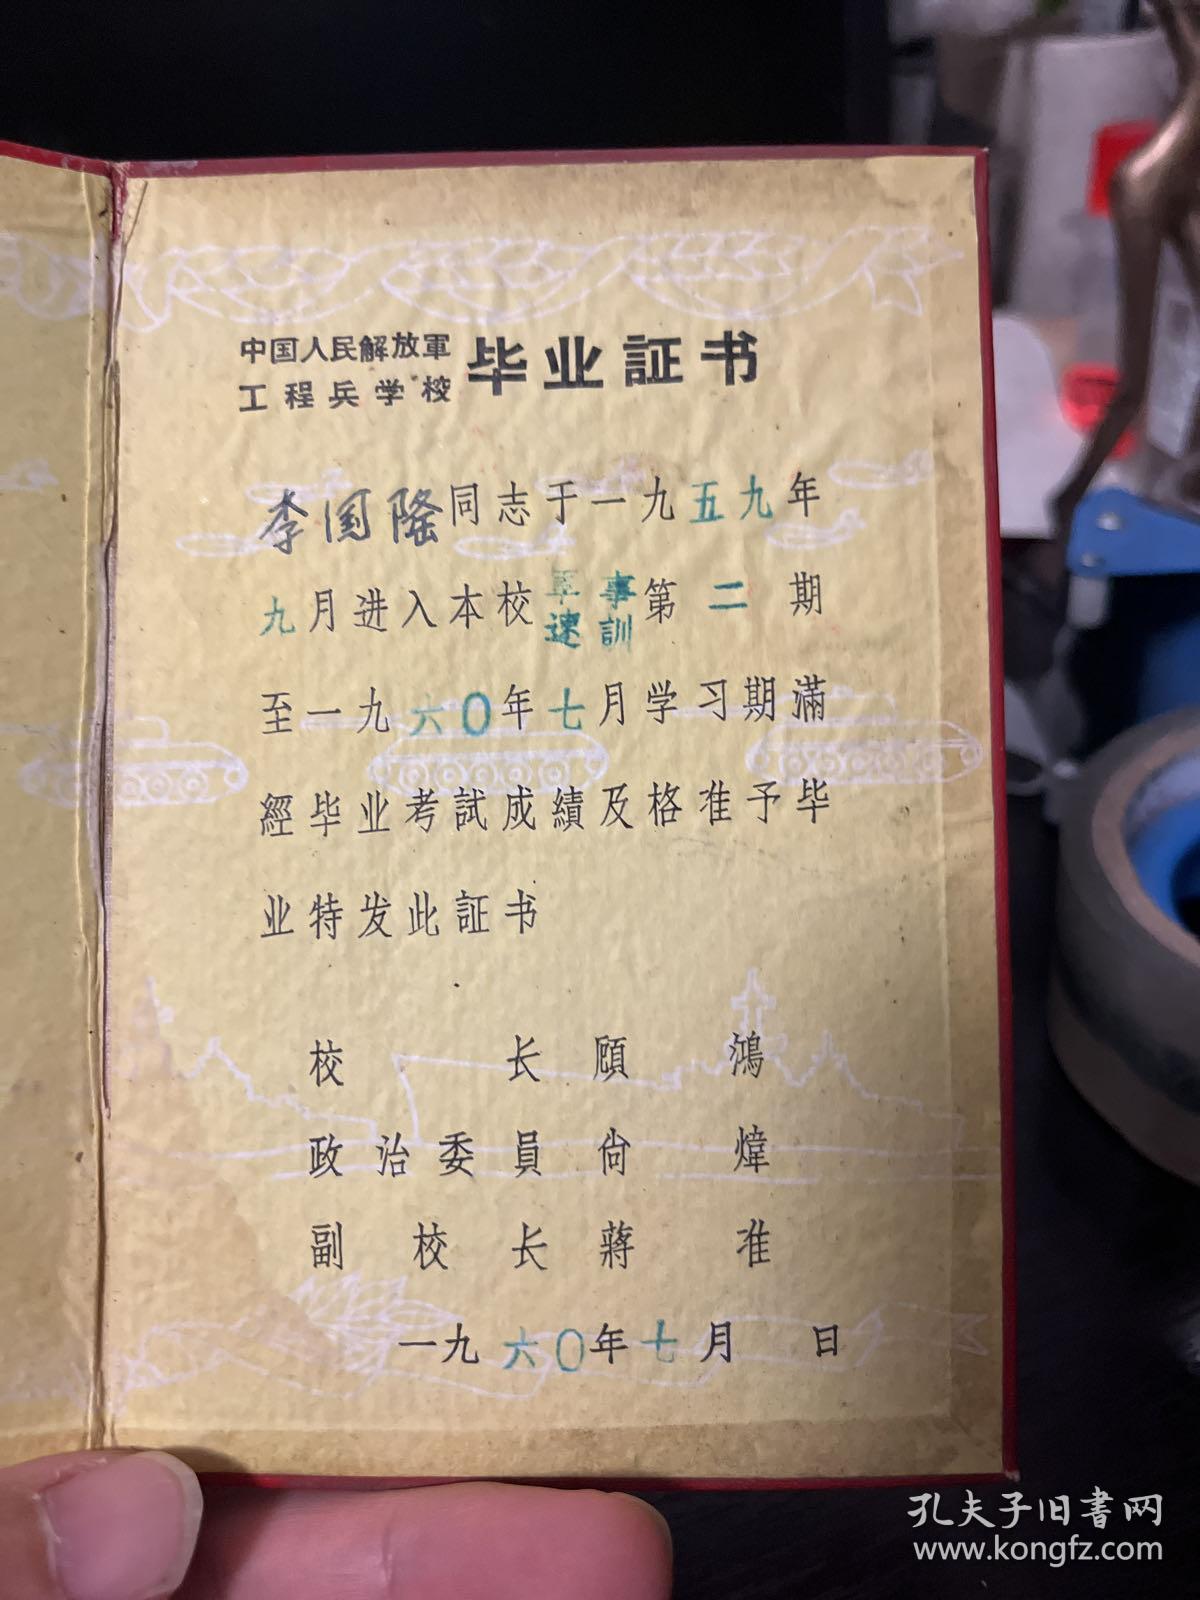 中国人民解放軍
工程兵学校
毕业証书
李国隆同志于一九五九年
九月进入本校軍事速訓第二期
至一九六〇年七月学习期滿
經毕业考試成績及格准予毕
业特发此証书
校长顧鴻
政治委員尙煒
副校长蔣准
一九六〇年七月 日
孔夫子旧書网
www.kongfz.com